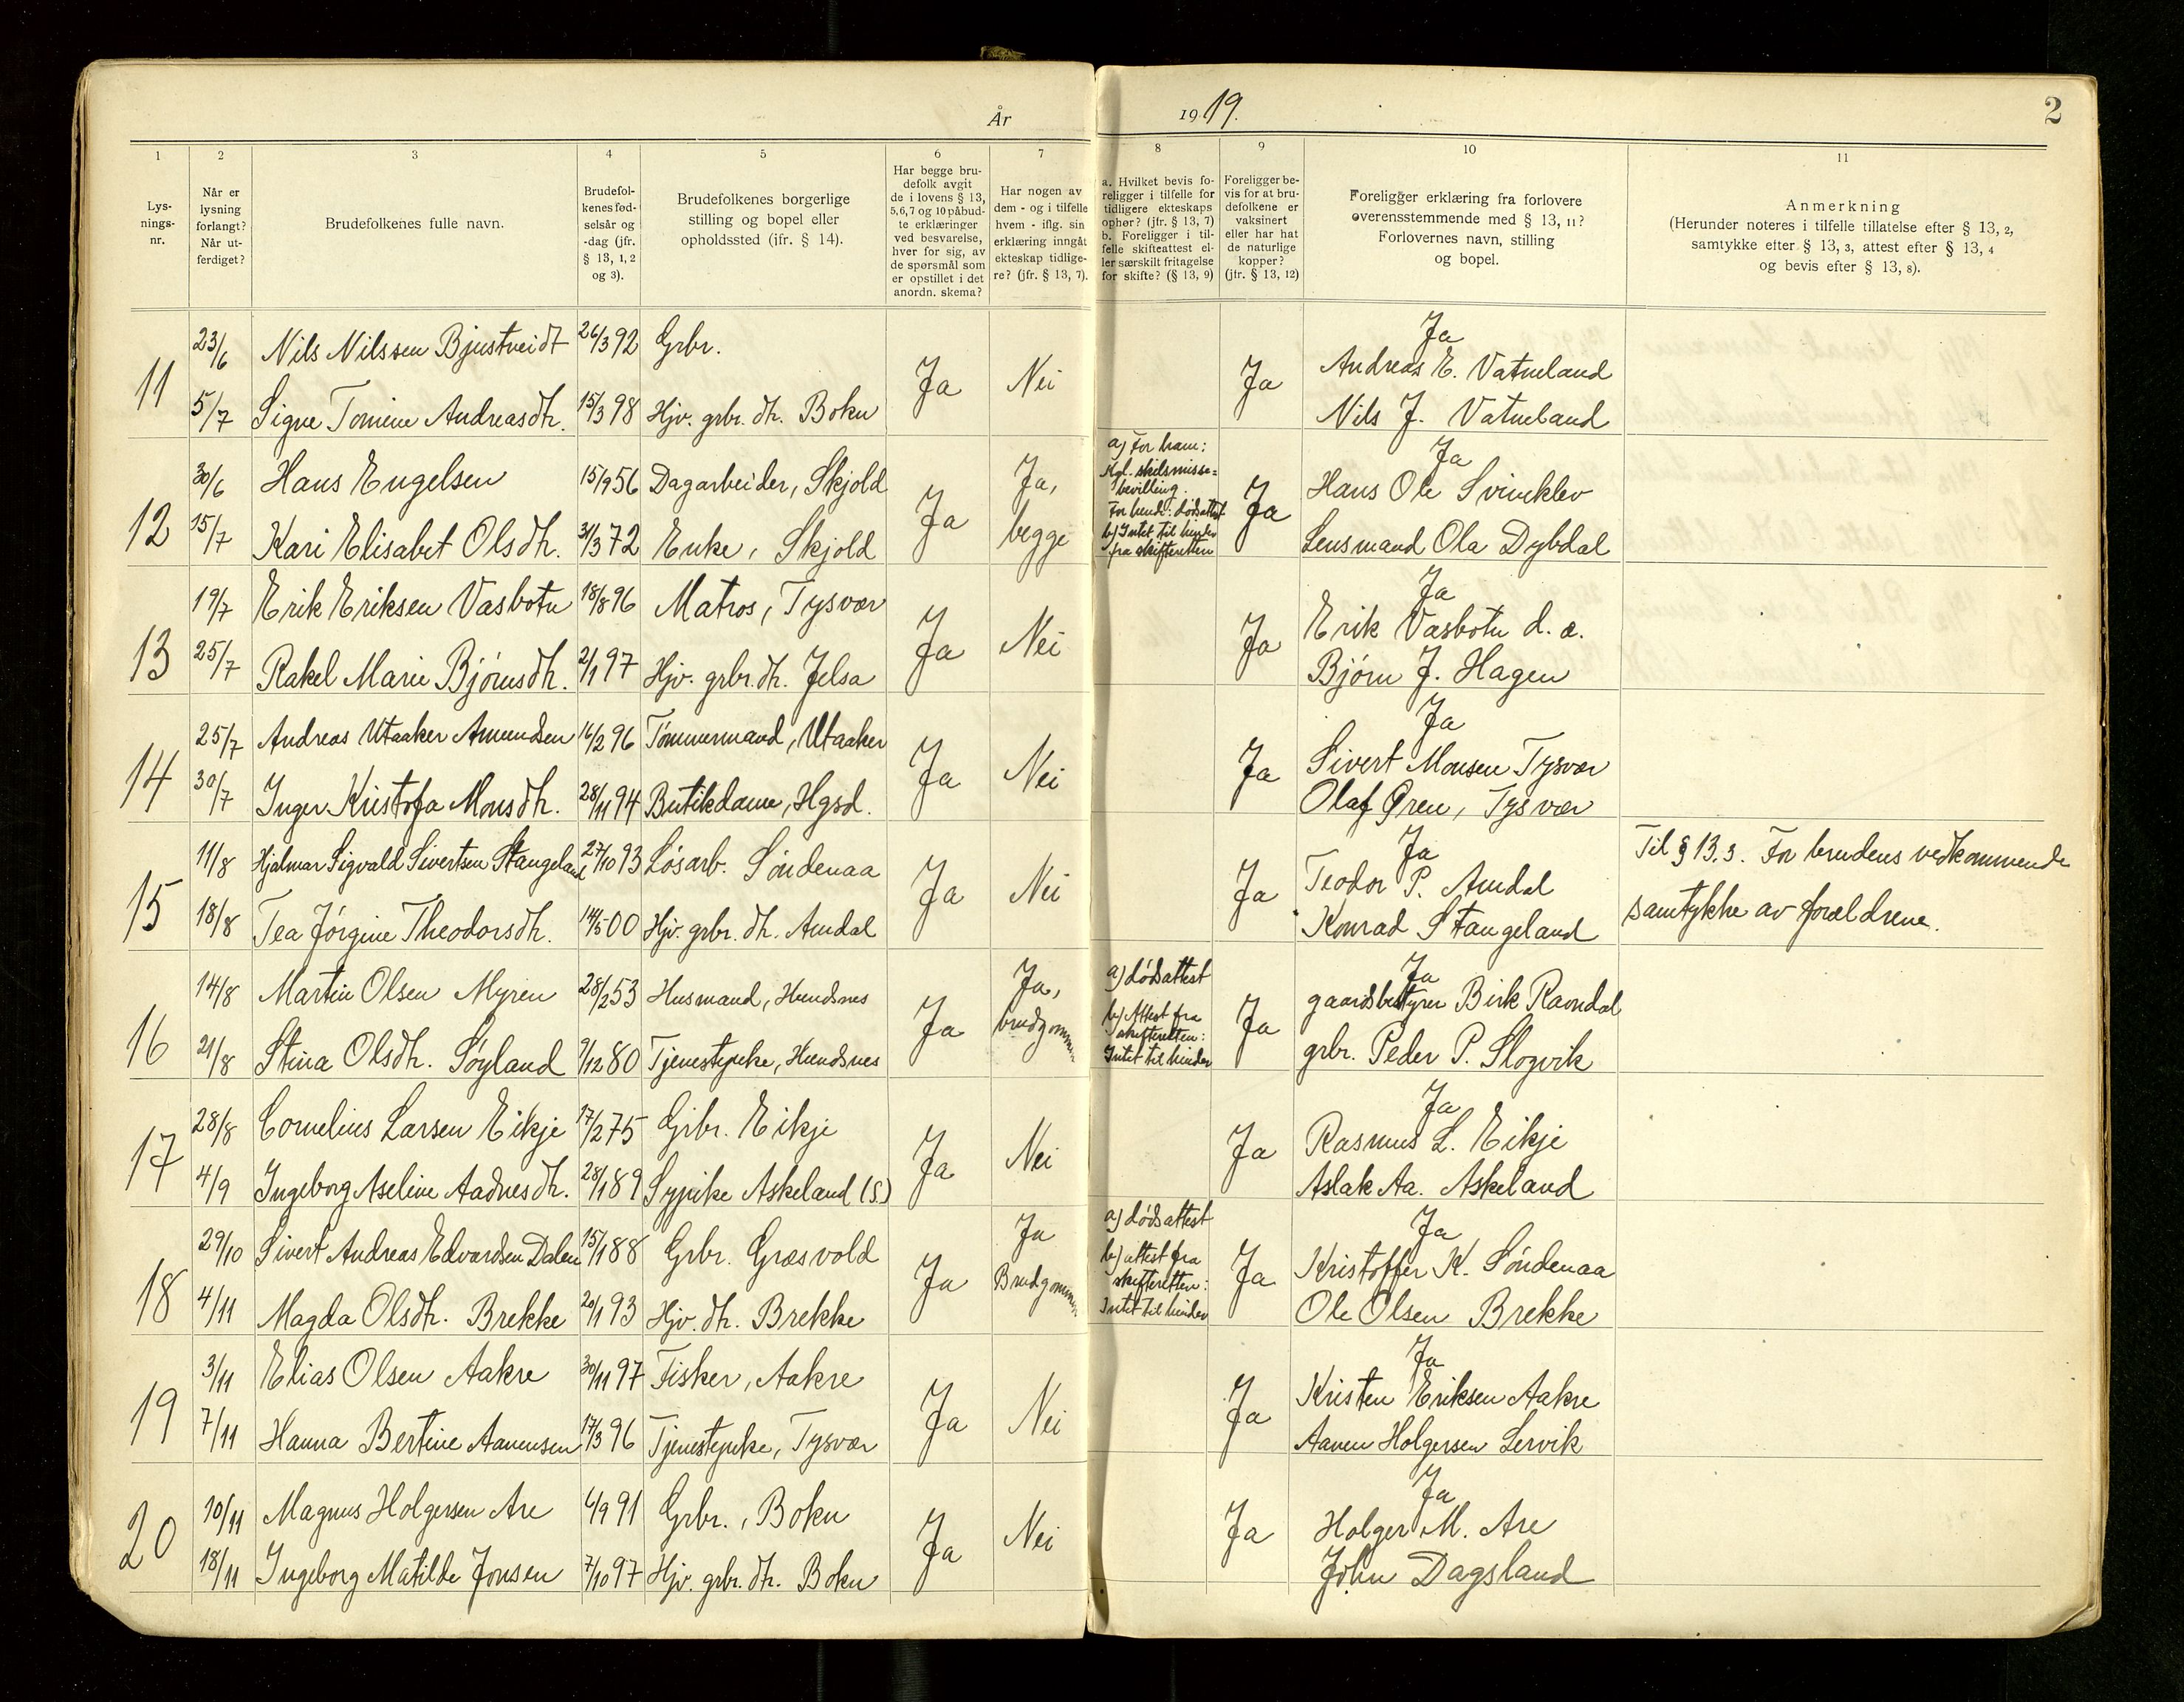 År 1919.
2
1
2
3
4
5
6
7
8
9
10
11
Lys-
nings-
nr.
Når er
lysning
forlangt?
Når ut-
ferdiget?
Brudefolkenes fulle navn.
Brudefol-
kenes fød-
selsår og
-dag (jfr.
§ 13, 1, 2
og 3).
Brudefolkenes borgerlige
stilling og bopel eller
opholdssted (jfr. § 14).
Har begge bru-
defolk avgit
de i lovens § 13,
5,6,7 og 10 påbud-
te erklæringer
ved besvarelse,
hver for sig, av
de spørsmål som
er opstillet i det
anordn. skema?
Har nogen av
dem - og i tilfelle
hvem - iflg. sin
erklæring inngåt
ekteskap tidlige-
re? (jfr. § 13, 7).
a. Hvilket bevis fo-
religger i tilfelle for
tidligere ekteskaps
ophør? (jfr. § 13, 7)
b. Foreligger i til-
felle skifteattest el-
ler særskilt fritagelse
for skifte? (§ 13, 9)
Foreligger be-
vis for at bru-
defolkene er
vaksinert
eller har hat
de naturlige
kopper?
(jfr. § 13, 12)
Foreligger erklæring fra forlovere
overensstemmende med § 13, 11?
Forlovernes navn, stilling
og bopel.
Anmerkning
(Herunder noteres i tilfelle tillatelse efter § 13, 2,
samtykke efter § 13, 3, attest efter § 13, 4
og bevis efter § 13, 8).
11
23/6 Nils Nilssen Bjustveidt 26/3 92 Grbr.
5/7 Signe Tomine Andreasdh. 15/3 98 Hjv. grbr. dh. Bokn
Ja
Nei
Ja
Ja
Andreas E. Vatneland
Nils J. Vatneland
12
30/6 Hans Engelsen 15/9 56 Dagarbeider, Skjold
15/7 Kari Elisabet Olsdh. 31/3 72 Enke, Skjold
Ja
Ja,
begge
a) For ham:
Kgl. skilsmisse=
bevilling.
For hende: dødsattest
b) Intet til hinder
fra skifteretten
Ja
Ja
Hans Ole Svinklev
Lensmand Ola Dybdal
13
19/7 Erik Eriksen Vasbotn 18/8 96 Matros, Tysvær
25/7 Rakel Marie Bjørnsdh. 2/1 97 Hjv. grbr. dh. Jelsa
Ja
Nei
Ja
Ja
Erik Vasbotn d. æ.
Bjørn J. Hagen
14
25/7 Andreas Utaaker Amundsen 16/2 96 Tømmermand, Utaaker
30/7 Inger Kristofa Monsdh. 28/11 94 Butikdame, Hgsd.
Ja
Nei
Ja
Ja
Sivert Monsen Tysvær
Olaf Øren, Tysvær
15
11/8 Hjalmar Sigvald Sivertsen Stangeland 27/10 93 Løsarb. Søndenaa
18/8 Tea Jørgine Theodorsdh. 14/5 00 Hjv. grbr. dh. Amdal
Ja
Nei
Ja
Ja
Teodor P. Amdal
Konrad Stangeland
Til § 13.3. For brudens vedkommende
samtykke av forældrene.
16
14/8 Martin Olsen Myren 28/2 53 Husmand, Hundsnes
21/8 Stina Olsdh. Søyland 9/12 80 Tjenestepike, Hundsnes
Ja
Ja,
brudgommen
a) dødsattest
b) Attest fra
skifteretten:
Intet til hinder
Ja
Ja
gaardsbestyrer Birk Ravndal
grbr. Peder P. Slogvik
17
28/8 Cornelius Larsen Eikje 17/2 75 Grbr. Eikje
4/9 Ingeborg Aseline Aadnesdh. 28/1 89 Sypike Askeland (S.)
Ja
Nei
Ja
Ja
Rasmus L. Eikje
Aslak Aa. Askeland
18
29/10 Sivert Andreas Edvardsen Dalen 15/1 88 Grbr. Græsvold
4/11 Magda Olsdh. Brekke 20/1 93 Hjv. dh. Brekke
Ja
Ja
Brudgommen
a) dødsattest
b) attest fra
skifteretten:
Intet til hinder
Ja
Ja
Kristoffer K. Søndenaa
Ole Olsen Brekke
19
3/11 Elias Olsen Aakre 30/11 97 Fisker, Aakre
7/11 Hanna Bertine Aanensen 17/3 96 Tjenestepike, Tysvær
Ja
Nei
Ja
Ja
Kristen Eriksen Aakre
Aanen Holgersen Lervik
20
10/11 Magnus Holgersen Are 6/9 91 Grbr., Bokn
18/11 Ingeborg Matilde Jonsen 7/10 97 Hjv. grbr. dh. Bokn
Ja
Nei
Ja
Ja
Holger M. Are
John Dagsland